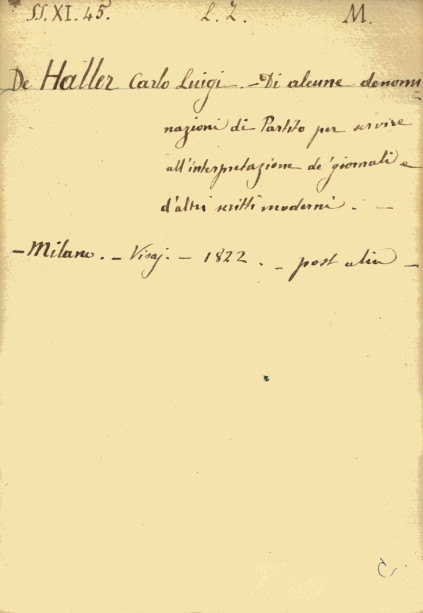 SS.XI.45. L. Z. M.
De Haller Carlo Luigi. - Di alcune denomi
nazioni di Partito per servire
all'interpretazione de' giornali e
d'altri scritti moderni. -
- Milano. - Visaj. - 1822. - post alia -